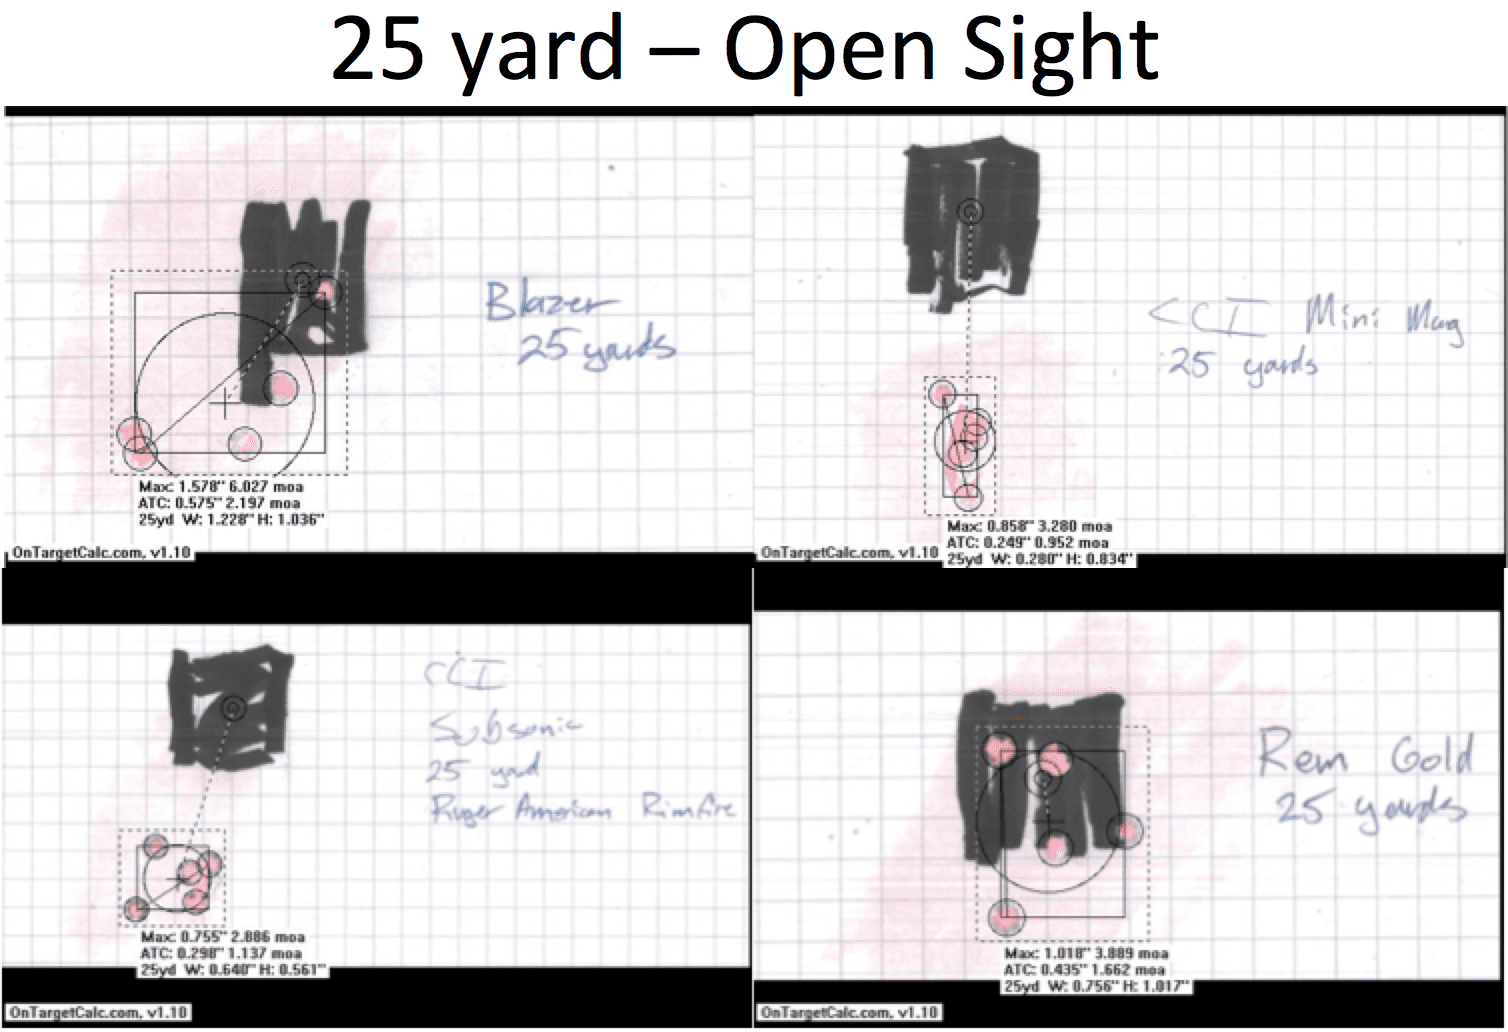 25 yard – Open Sight
Blazer
25 yards
Max: 1.578" 6.027 moa
ATC: 0.575" 2.197 moa
25yd W: 1.228" H: 1.036"
OnTargetCalc.com, v1.10
CCI Mini Mag
25 yards
Max: 0.858" 3.280 moa
ATC: 0.249" 0.952 moa
25yd W: 0.280" H: 0.834"
OnTargetCalc.com, v1.10
CCI
Subsonic
25 yard
Ruger American Rimfire
Max: 0.755" 2.886 moa
ATC: 0.298" 1.137 moa
25yd W: 0.640" H: 0.561"
OnTargetCalc.com, v1.10
Rem Gold
25 yards
Max: 1.018" 3.889 moa
ATC: 0.435" 1.662 moa
25yd W: 0.756" H: 1.017"
OnTargetCalc.com, v1.10